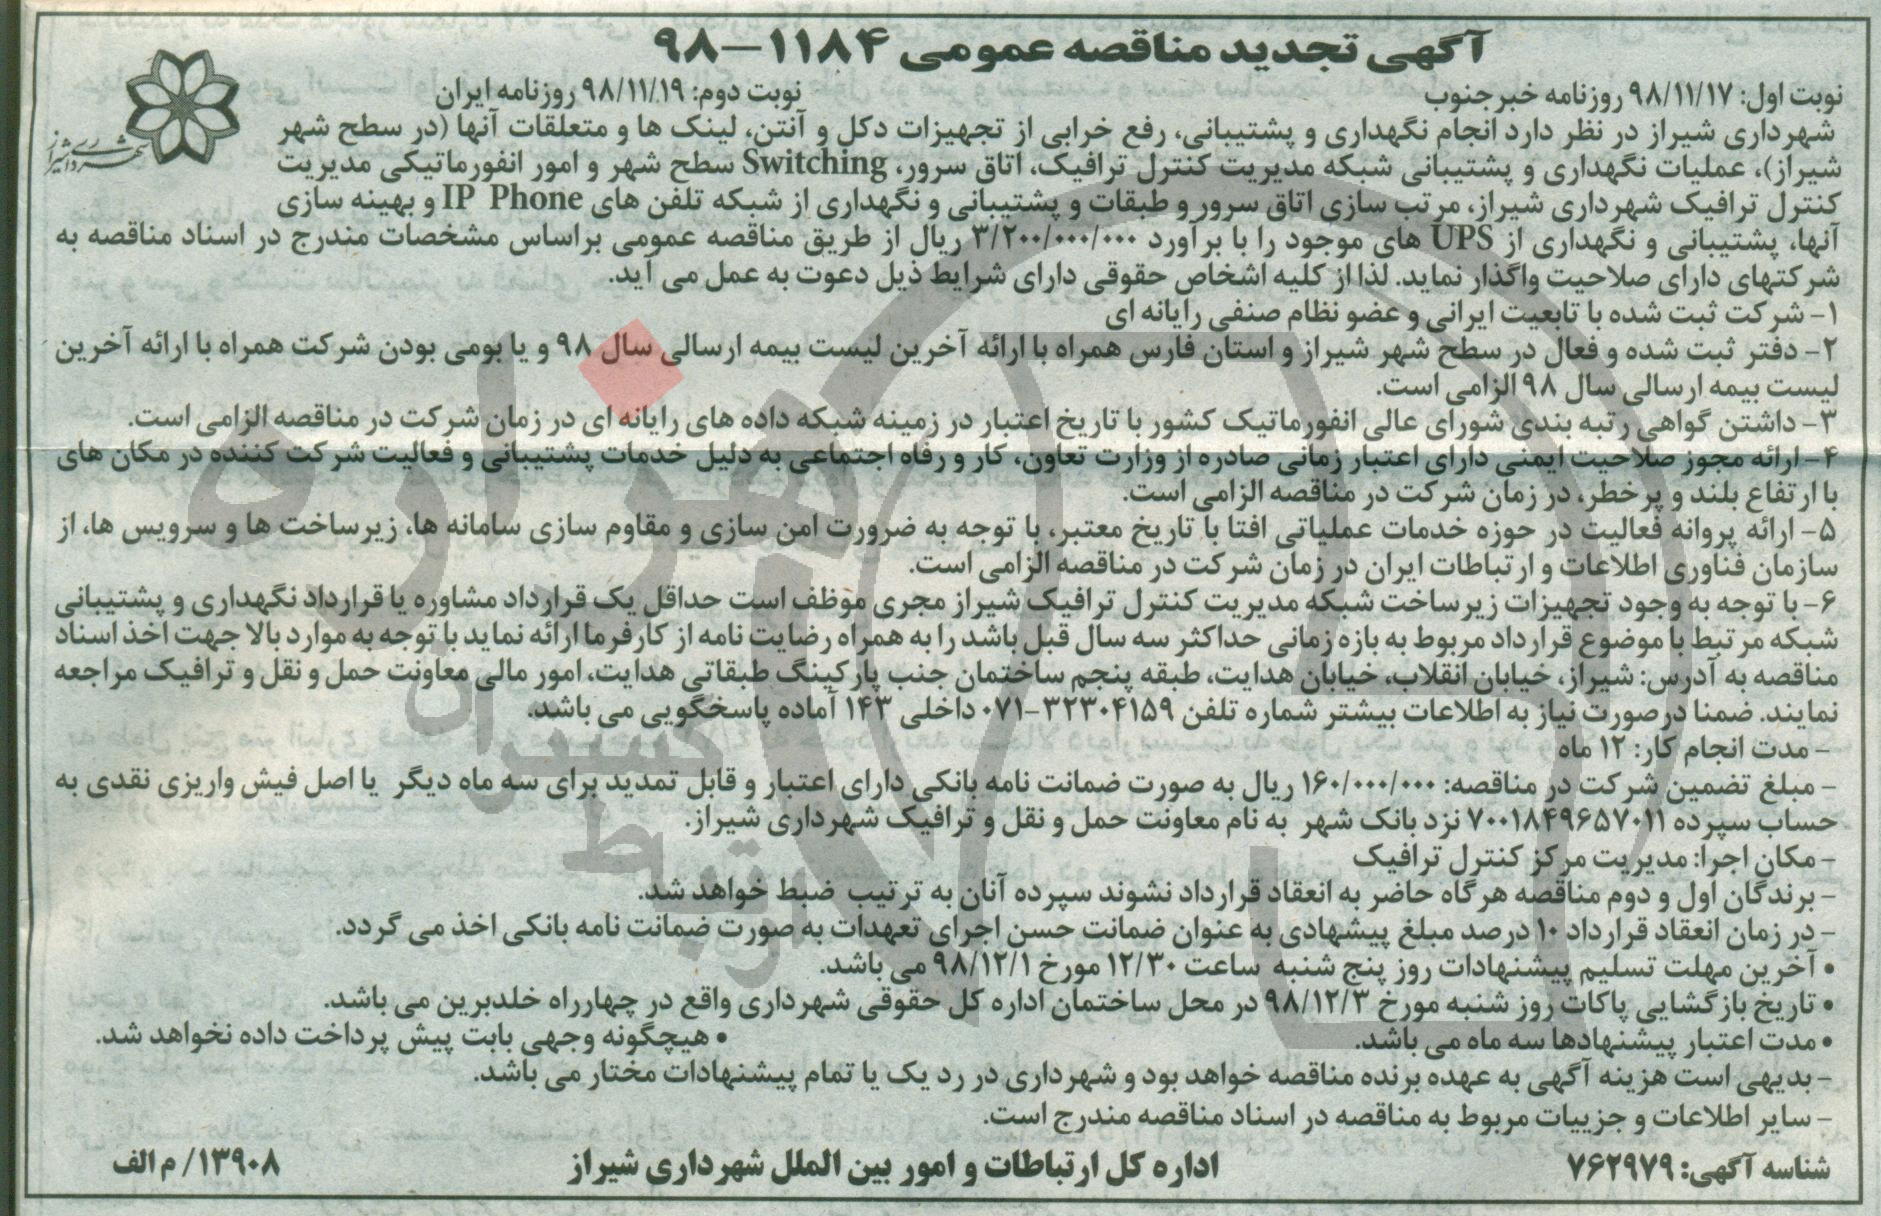 آگهی تجدید مناقصه عمومی ۱۱۸۴-۹۸
نوبت اول: ۹۸/۱۱/۱۷ روزنامه خبرجنوب
نوبت دوم: ۹۸/۱۱/۱۹ روزنامه ایران
شهرداری شیراز
شهرداری شیراز در نظر دارد انجام نگهداری و پشتیبانی، رفع خرابی از تجهیزات دکل و آنتن، لینک ها و متعلقات آنها (در سطح شهر
شیراز)، عملیات نگهداری و پشتیبانی شبکه مدیریت کنترل ترافیک، اتاق سرور، Switching سطح شهر و امور انفورماتیکی مدیریت
کنترل ترافیک شهرداری شیراز، مرتب سازی اتاق سرور و طبقات و پشتیبانی و نگهداری از شبکه تلفن های IP Phone و بهینه سازی
آنها، پشتیبانی و نگهداری از UPS های موجود را با برآورد ۳/۲۰۰/۰۰۰/۰۰۰ ریال از طریق مناقصه عمومی براساس مشخصات مندرج در اسناد مناقصه به
شرکتهای دارای صلاحیت واگذار نماید. لذا از کلیه اشخاص حقوقی دارای شرایط ذیل دعوت به عمل می آید.
۱- شرکت ثبت شده با تابعیت ایرانی و عضو نظام صنفی رایانه ای
۲- دفتر ثبت شده و فعال در سطح شهر شیراز و استان فارس همراه با ارائه آخرین لیست بیمه ارسالی سال ۹۸ و یا بومی بودن شرکت همراه با ارائه آخرین
لیست بیمه ارسالی سال ۹۸ الزامی است.
۳- داشتن گواهی رتبه بندی شورای عالی انفورماتیک کشور با تاریخ اعتبار در زمینه شبکه داده های رایانه ای در زمان شرکت در مناقصه الزامی است.
۴- ارائه مجوز صلاحیت ایمنی دارای اعتبار زمانی صادره از وزارت تعاون، کار و رفاه اجتماعی به دلیل خدمات پشتیبانی و فعالیت شرکت کننده در مکان های
با ارتفاع بلند و پرخطر، در زمان شرکت در مناقصه الزامی است.
۵- ارائه پروانه فعالیت در حوزه خدمات عملیاتی افتا با تاریخ معتبر، با توجه به ضرورت امن سازی و مقاوم سازی سامانه ها، زیرساخت ها و سرویس ها، از
سازمان فناوری اطلاعات و ارتباطات ایران در زمان شرکت در مناقصه الزامی است.
۶- با توجه به وجود تجهیزات زیرساخت شبکه مدیریت کنترل ترافیک شیراز مجری موظف است حداقل یک قرارداد مشاوره یا قرارداد نگهداری و پشتیبانی
شبکه مرتبط با موضوع قرارداد مربوط به بازه زمانی حداکثر سه سال قبل باشد را به همراه رضایت نامه از کارفرما ارائه نماید با توجه به موارد بالا جهت اخذ اسناد
مناقصه به آدرس: شیراز، خیابان انقلاب، خیابان هدایت، طبقه پنجم ساختمان جنب پارکینگ طبقاتی هدایت، امور مالی معاونت حمل و نقل و ترافیک مراجعه
نمایند. ضمنا درصورت نیاز به اطلاعات بیشتر شماره تلفن ۳۲۳۰۴۱۵۹-۰۷۱ داخلی ۱۴۳ آماده پاسخگویی می باشد.
- مدت انجام کار: ۱۲ ماه
- مبلغ تضمین شرکت در مناقصه: ۱۶۰/۰۰۰/۰۰۰ ریال به صورت ضمانت نامه بانکی دارای اعتبار و قابل تمدید برای سه ماه دیگر یا اصل فیش واریزی نقدی به
حساب سپرده ۷۰۰۱۸۴۹۶۵۷۰۱۱ نزد بانک شهر به نام معاونت حمل و نقل و ترافیک شهرداری شیراز.
- مکان اجرا: مدیریت مرکز کنترل ترافیک
- برندگان اول و دوم مناقصه هرگاه حاضر به انعقاد قرارداد نشوند سپرده آنان به ترتیب ضبط خواهد شد.
- در زمان انعقاد قرارداد ۱۰ درصد مبلغ پیشنهادی به عنوان ضمانت حسن اجرای تعهدات به صورت ضمانت نامه بانکی اخذ می گردد.
• آخرین مهلت تسلیم پیشنهادات روز پنج شنبه ساعت ۱۲/۳۰ مورخ ۹۸/۱۲/۱ می باشد.
• تاریخ بازگشایی پاکات روز شنبه مورخ ۹۸/۱۲/۳ در محل ساختمان اداره کل حقوقی شهرداری واقع در چهارراه خلدبرین می باشد.
• مدت اعتبار پیشنهادها سه ماه می باشد.
• هیچگونه وجهی بابت پیش پرداخت داده نخواهد شد.
- بدیهی است هزینه آگهی به عهده برنده مناقصه خواهد بود و شهرداری در رد یک یا تمام پیشنهادات مختار می باشد.
- سایر اطلاعات و جزییات مربوط به مناقصه در اسناد مناقصه مندرج است.
شناسه آگهی: ۷۶۲۹۷۹
اداره کل ارتباطات و امور بین الملل شهرداری شیراز
۱۳۹۰۸/ م الف
هزاره
گستران
ارتباط